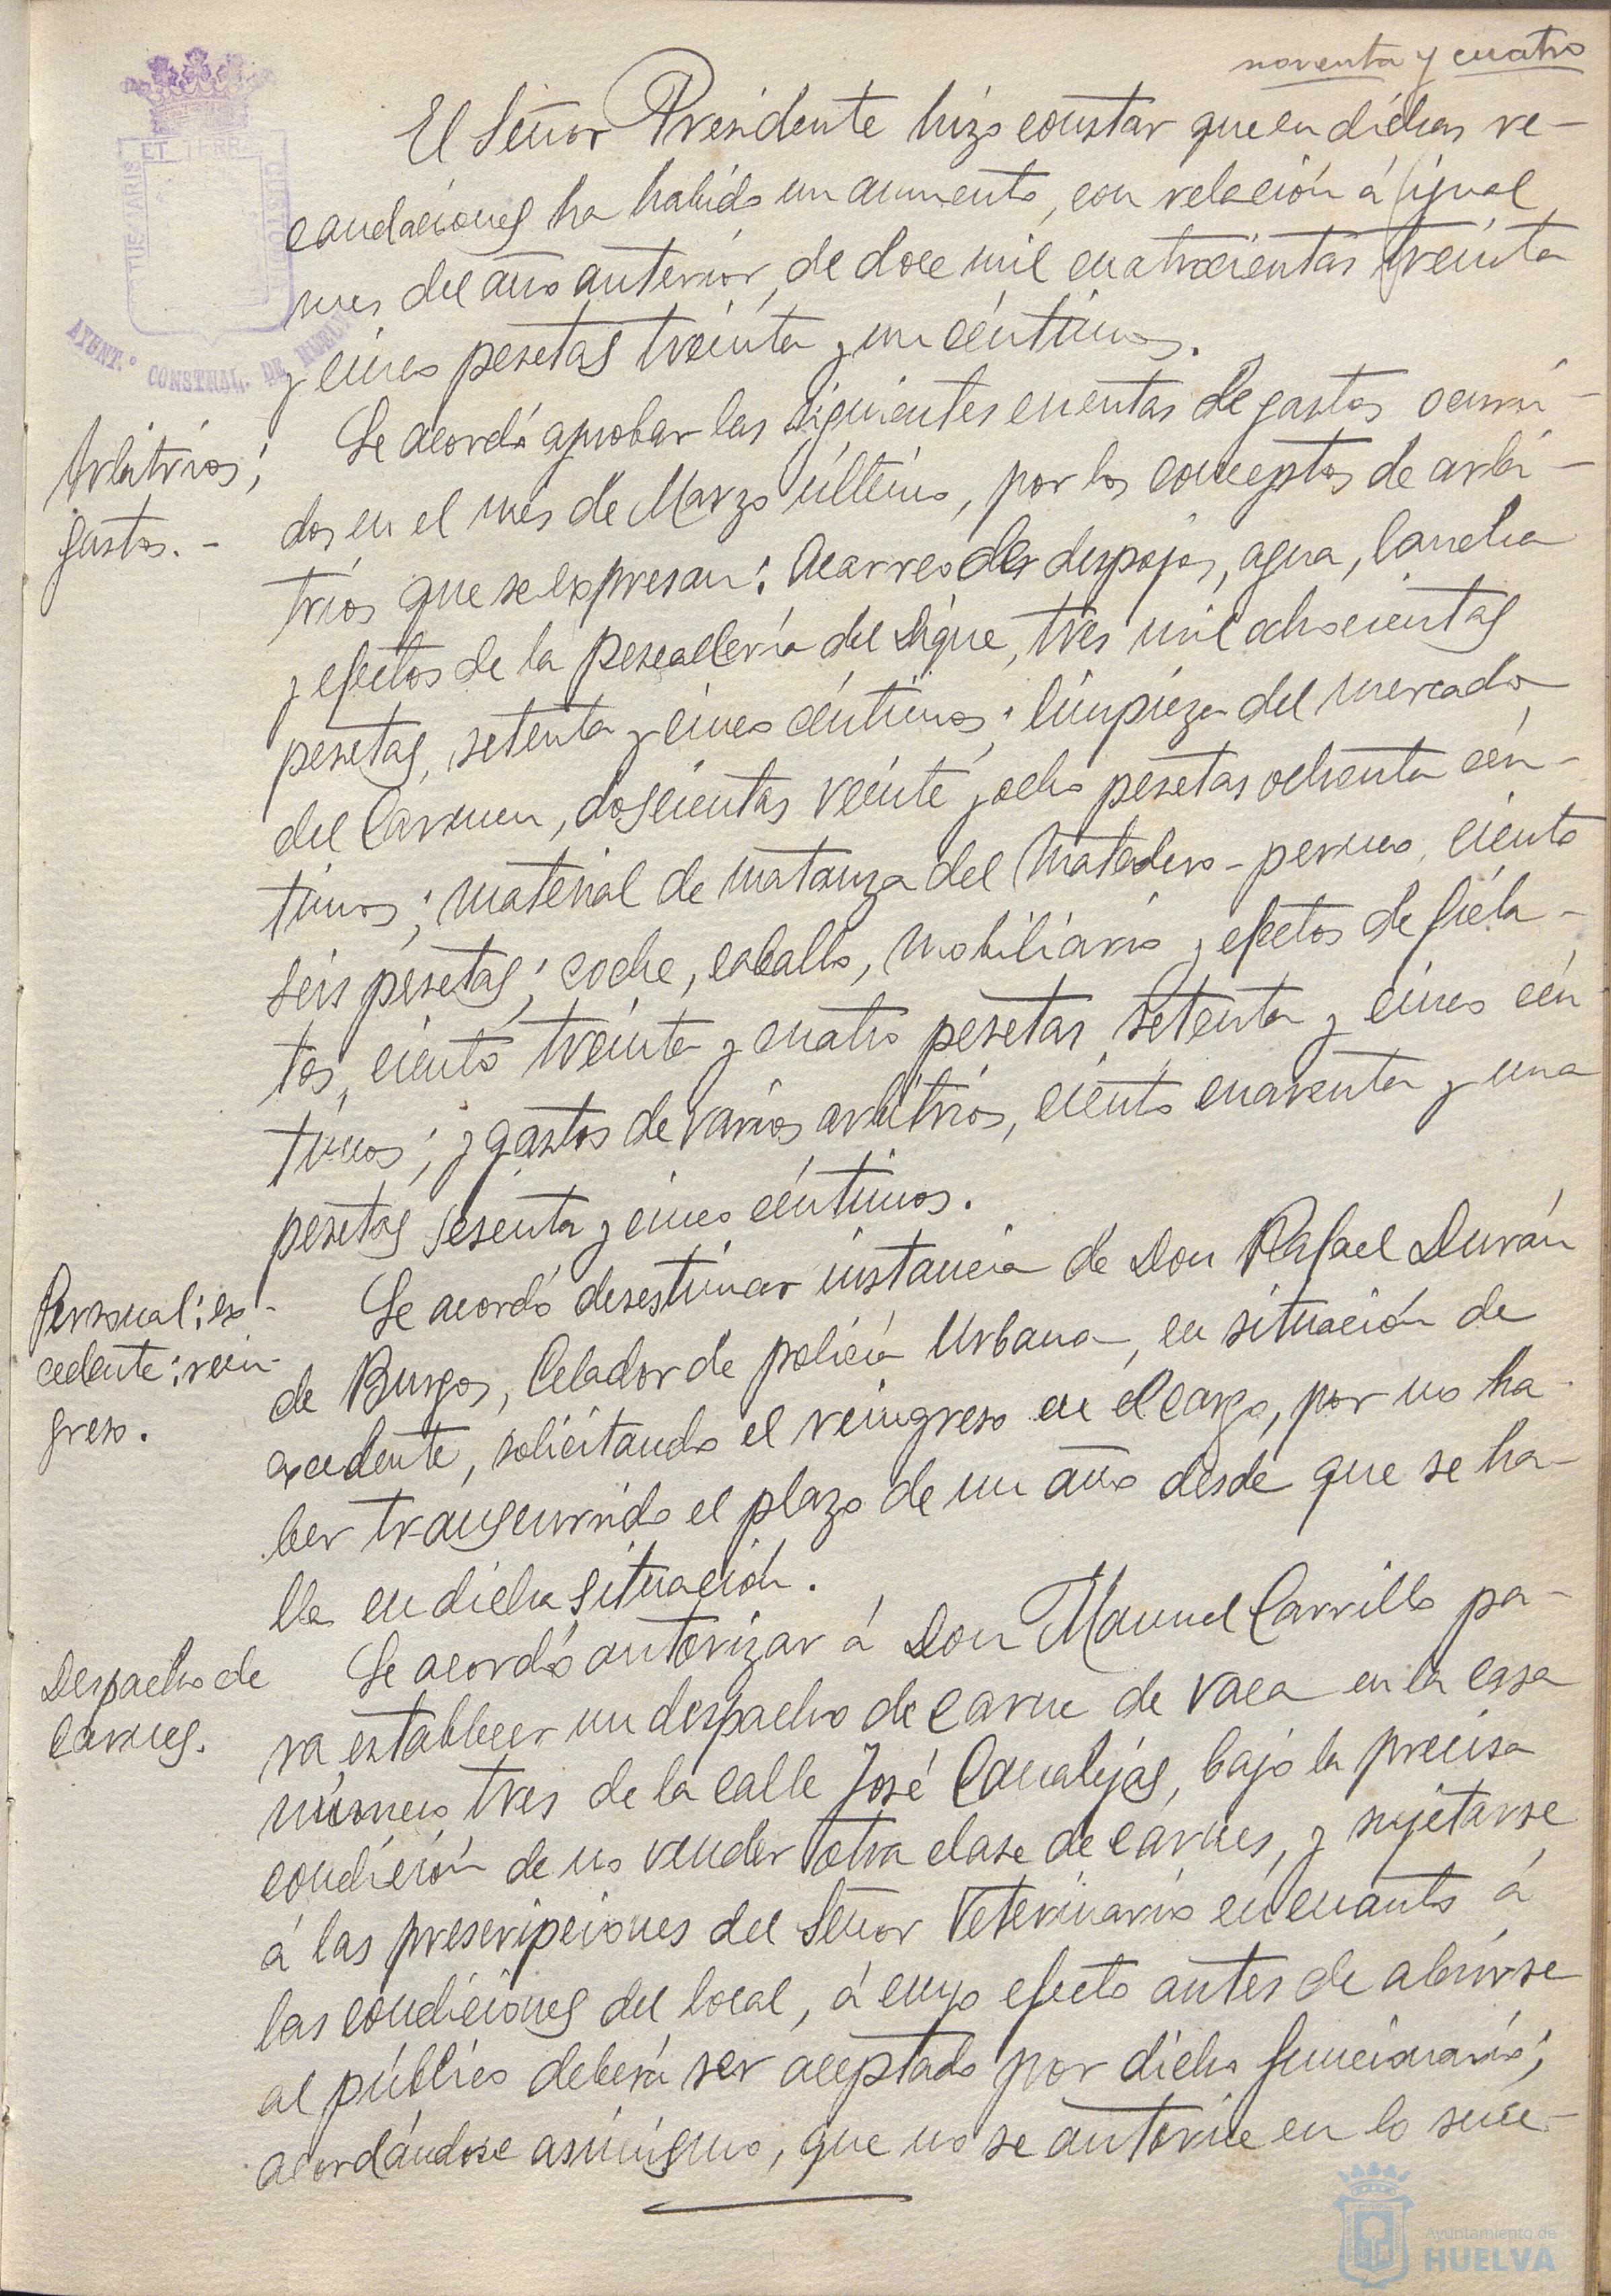 noventa y cuatro
El Señor Presidente hizo constar que en dichas re-
caudaciones ha habido un aumento, con relación á igual
mes del año anterior, de doce mil cuatrocientas treinta
y cinco pesetas treinta y un céntimos.
Arbitrios;
gastos. -
Se acordó aprobar las siguientes cuentas de gastos ocurri-
dos en el mes de Marzo último, por los conceptos de arbi-
trios que se expresan: Acarreo de despojos, agua, lancha
y efectos de la pescadería del dique, tres mil ochocientas
pesetas, setenta y cinco céntimos; limpieza del mercado
del Carmen, doscientas veinte y ocho pesetas ochenta cén-
timos; material de matanza del Matadero-permeo, ciento
seis pesetas; coche, caballo, mobiliario y efectos de fiela-
tos, ciento treinta y cuatro pesetas setenta y cinco cén
timos; y gastos de varios arbitrios, ciento cuarenta y una
pesetas sesenta y cinco céntimos.
Personal: ex-
cedente: rein-
greso.
Se acordó desestimar instancia de Don Rafael Durán
de Burgos, Celador de policía Urbana, en situación de
excedente, solicitando el reingreso en el cargo, por no ha-
ber transcurrido el plazo de un año desde que se ha-
lla en dicha situación.
Despacho de
carnes.
Se acordó autorizar á Don Manuel Carrillo pa-
ra establecer un despacho de carne de vaca en la casa
número tres de la calle José Canalejas, bajo la precisa
condición de no vender otra clase de carnes, y sujetarse
á las prescripciones del Señor Veterinario en cuanto á
las condiciones del local, á cuyo efecto antes de abrirse
al público deberá ser aceptado por dicho funcionario;
acordándose asimismo, que no se autorice en lo suce-
TUS MARIS ET TERRÆ CUSTODIA
AYUNT.º CONSTNAL. DE HUELVA
Ayuntamiento de
HUELVA